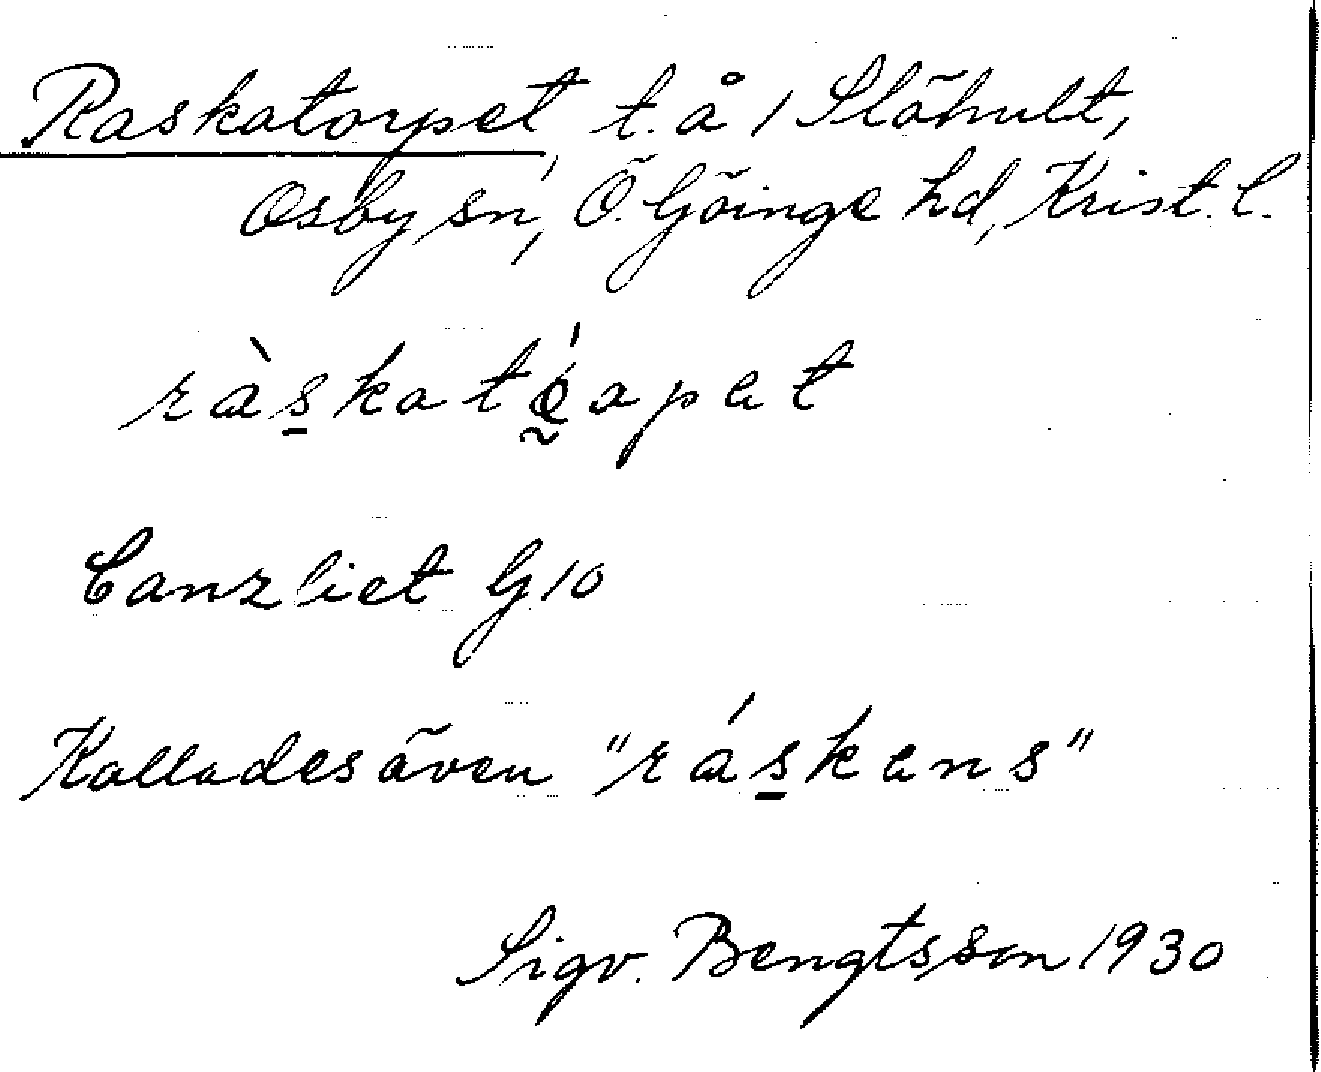 Raskatorpet t. å 1 Slähult,
Osby sn, Ö. Göinge hd, Krist. l.
ràskatǿapet
Canzliet G 10
Kallades även "ráskens"
Sigv. Bengtsson 1930